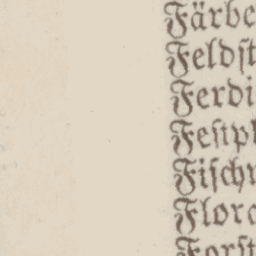 Färbe
Feldſt
Ferdi
Feſtpl
Fiſchr
Flora
Forſt